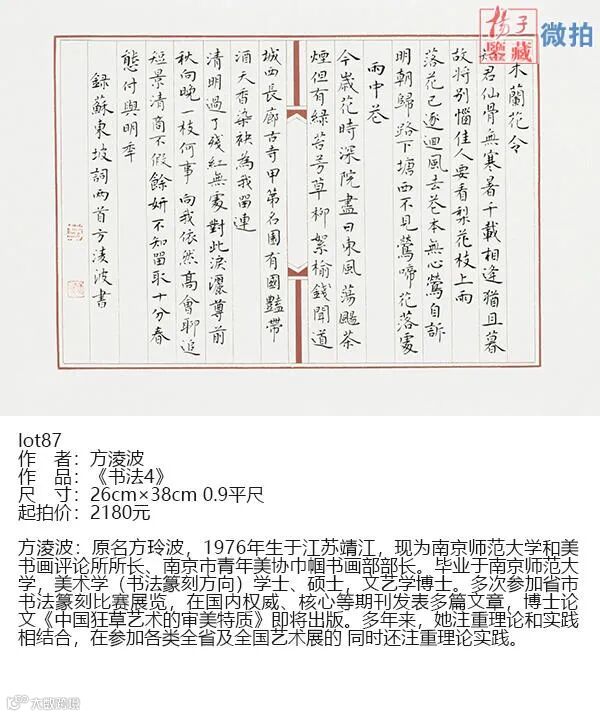 楊子
鑒藏
微拍
木蘭花令
君仙骨無寒暑千載相逢猶旦暮
故將別惱佳人要看梨花枝上雨
落花已逐迴風去花本無心鶯自訴
明朝歸路下塘西不見鶯啼花落處
雨中花
今歲花時深院盡日東風蕩颺茶
煙但有綠苔芳草柳絮榆錢聞道
城西長廊古寺甲第名園有國豔帶
酒天香染袂為我留連
清明過了殘紅無處對此淚灑尊前
秋向晚一枝何事向我依然高會聊追
短景清商不假餘妍不知留取十分春
態付與明年
錄蘇東坡詞兩首方淩波書
lot87
作 者：方淩波
作 品：《书法4》
尺 寸：26cm×38cm 0.9平尺
起拍价：2180元
方淩波：原名方玲波，1976年生于江苏靖江，现为南京师范大学和美
书画评论所所长、南京市青年美协巾帼书画部部长。毕业于南京师范大
学，美术学（书法篆刻方向）学士、硕士，文艺学博士。多次参加省市
书法篆刻比赛展览，在国内权威、核心等期刊发表多篇文章，博士论
文《中国狂草艺术的审美特质》即将出版。多年来，她注重理论和实践
相结合，在参加各类全省及全国艺术展的 同时还注重理论实践。